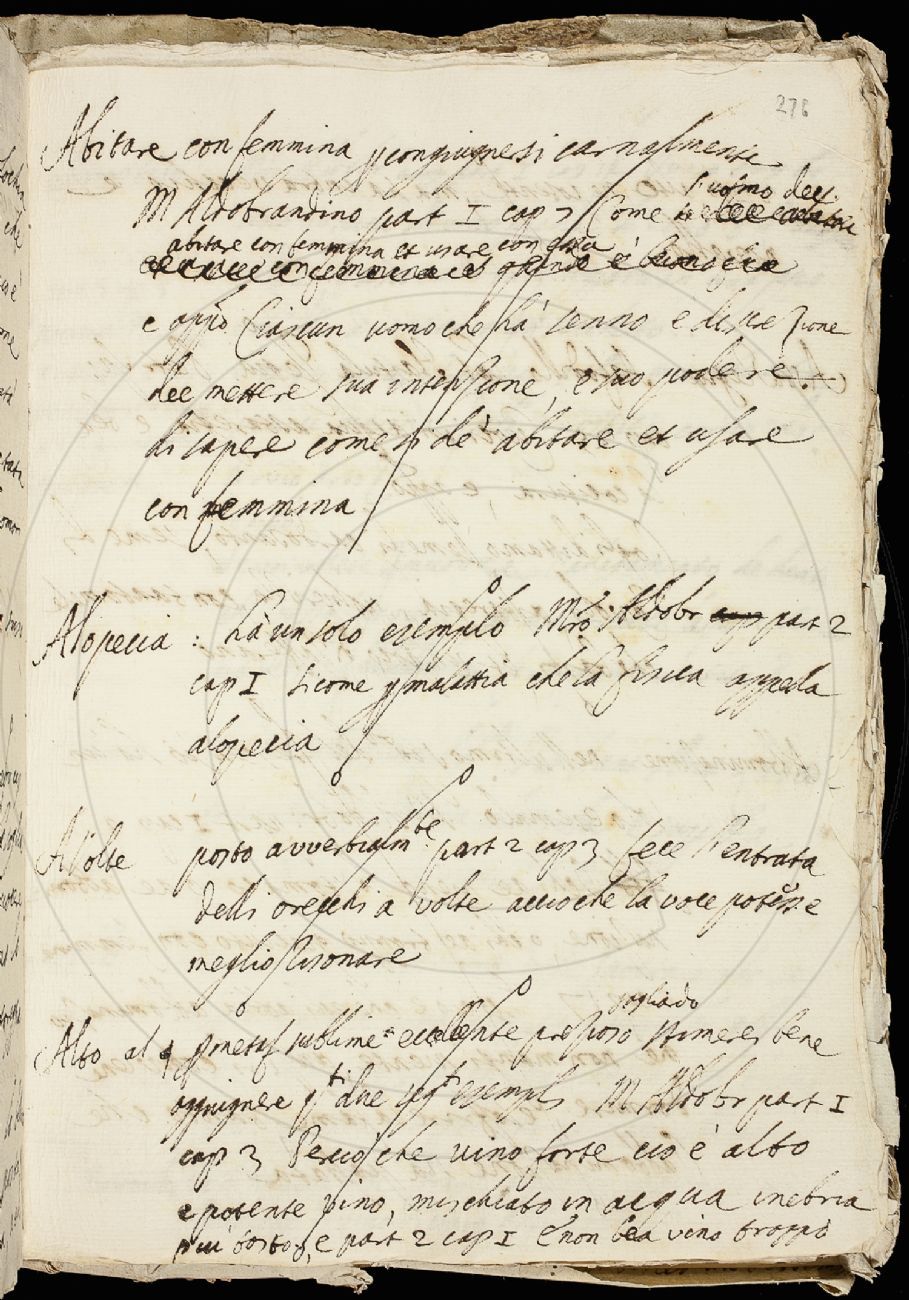 276
Abitare con femmina p congiugnersi carnalmente
M Aldobrandino part I cap 7 Come l'uomo dee
abitare con femmina et usare con essa
e appò Ciascun uomo che hà senno e discrezione
dee mettere sua intenzione, e suo podere
di sapere come si de' abitare et usare
con femmina
Alopecia : hà un solo esemplo Mro Aldobr part 2
cap I sicome p malattia che la fisica appella
alopecia
A Volte posto avverbialmte part 2 cap 3 fece l'entrata
delli orecchi a volte accioche la voce potesse
meglio risonare
Alto al p metaf sublime eccellente prezioso stimerei bene
aggiugnere qti due segti esempli M Aldobr part I
cap 3 Percioche vino forte cio è alto
e potente vino, mischiato in acqua inebria
più tosto, e part 2 cap I E non bea vino troppo